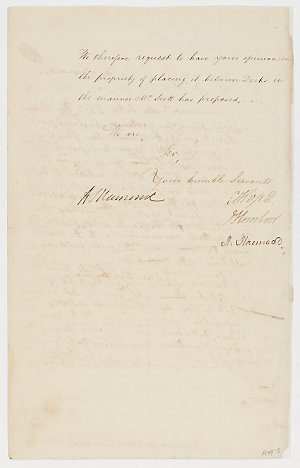 We therefore request to have your opinion on
the propriety of placing it between Decks, in
the manner Mr Scott has proposed.
We are,
Sir,
Your humble Servants
A S Hamond